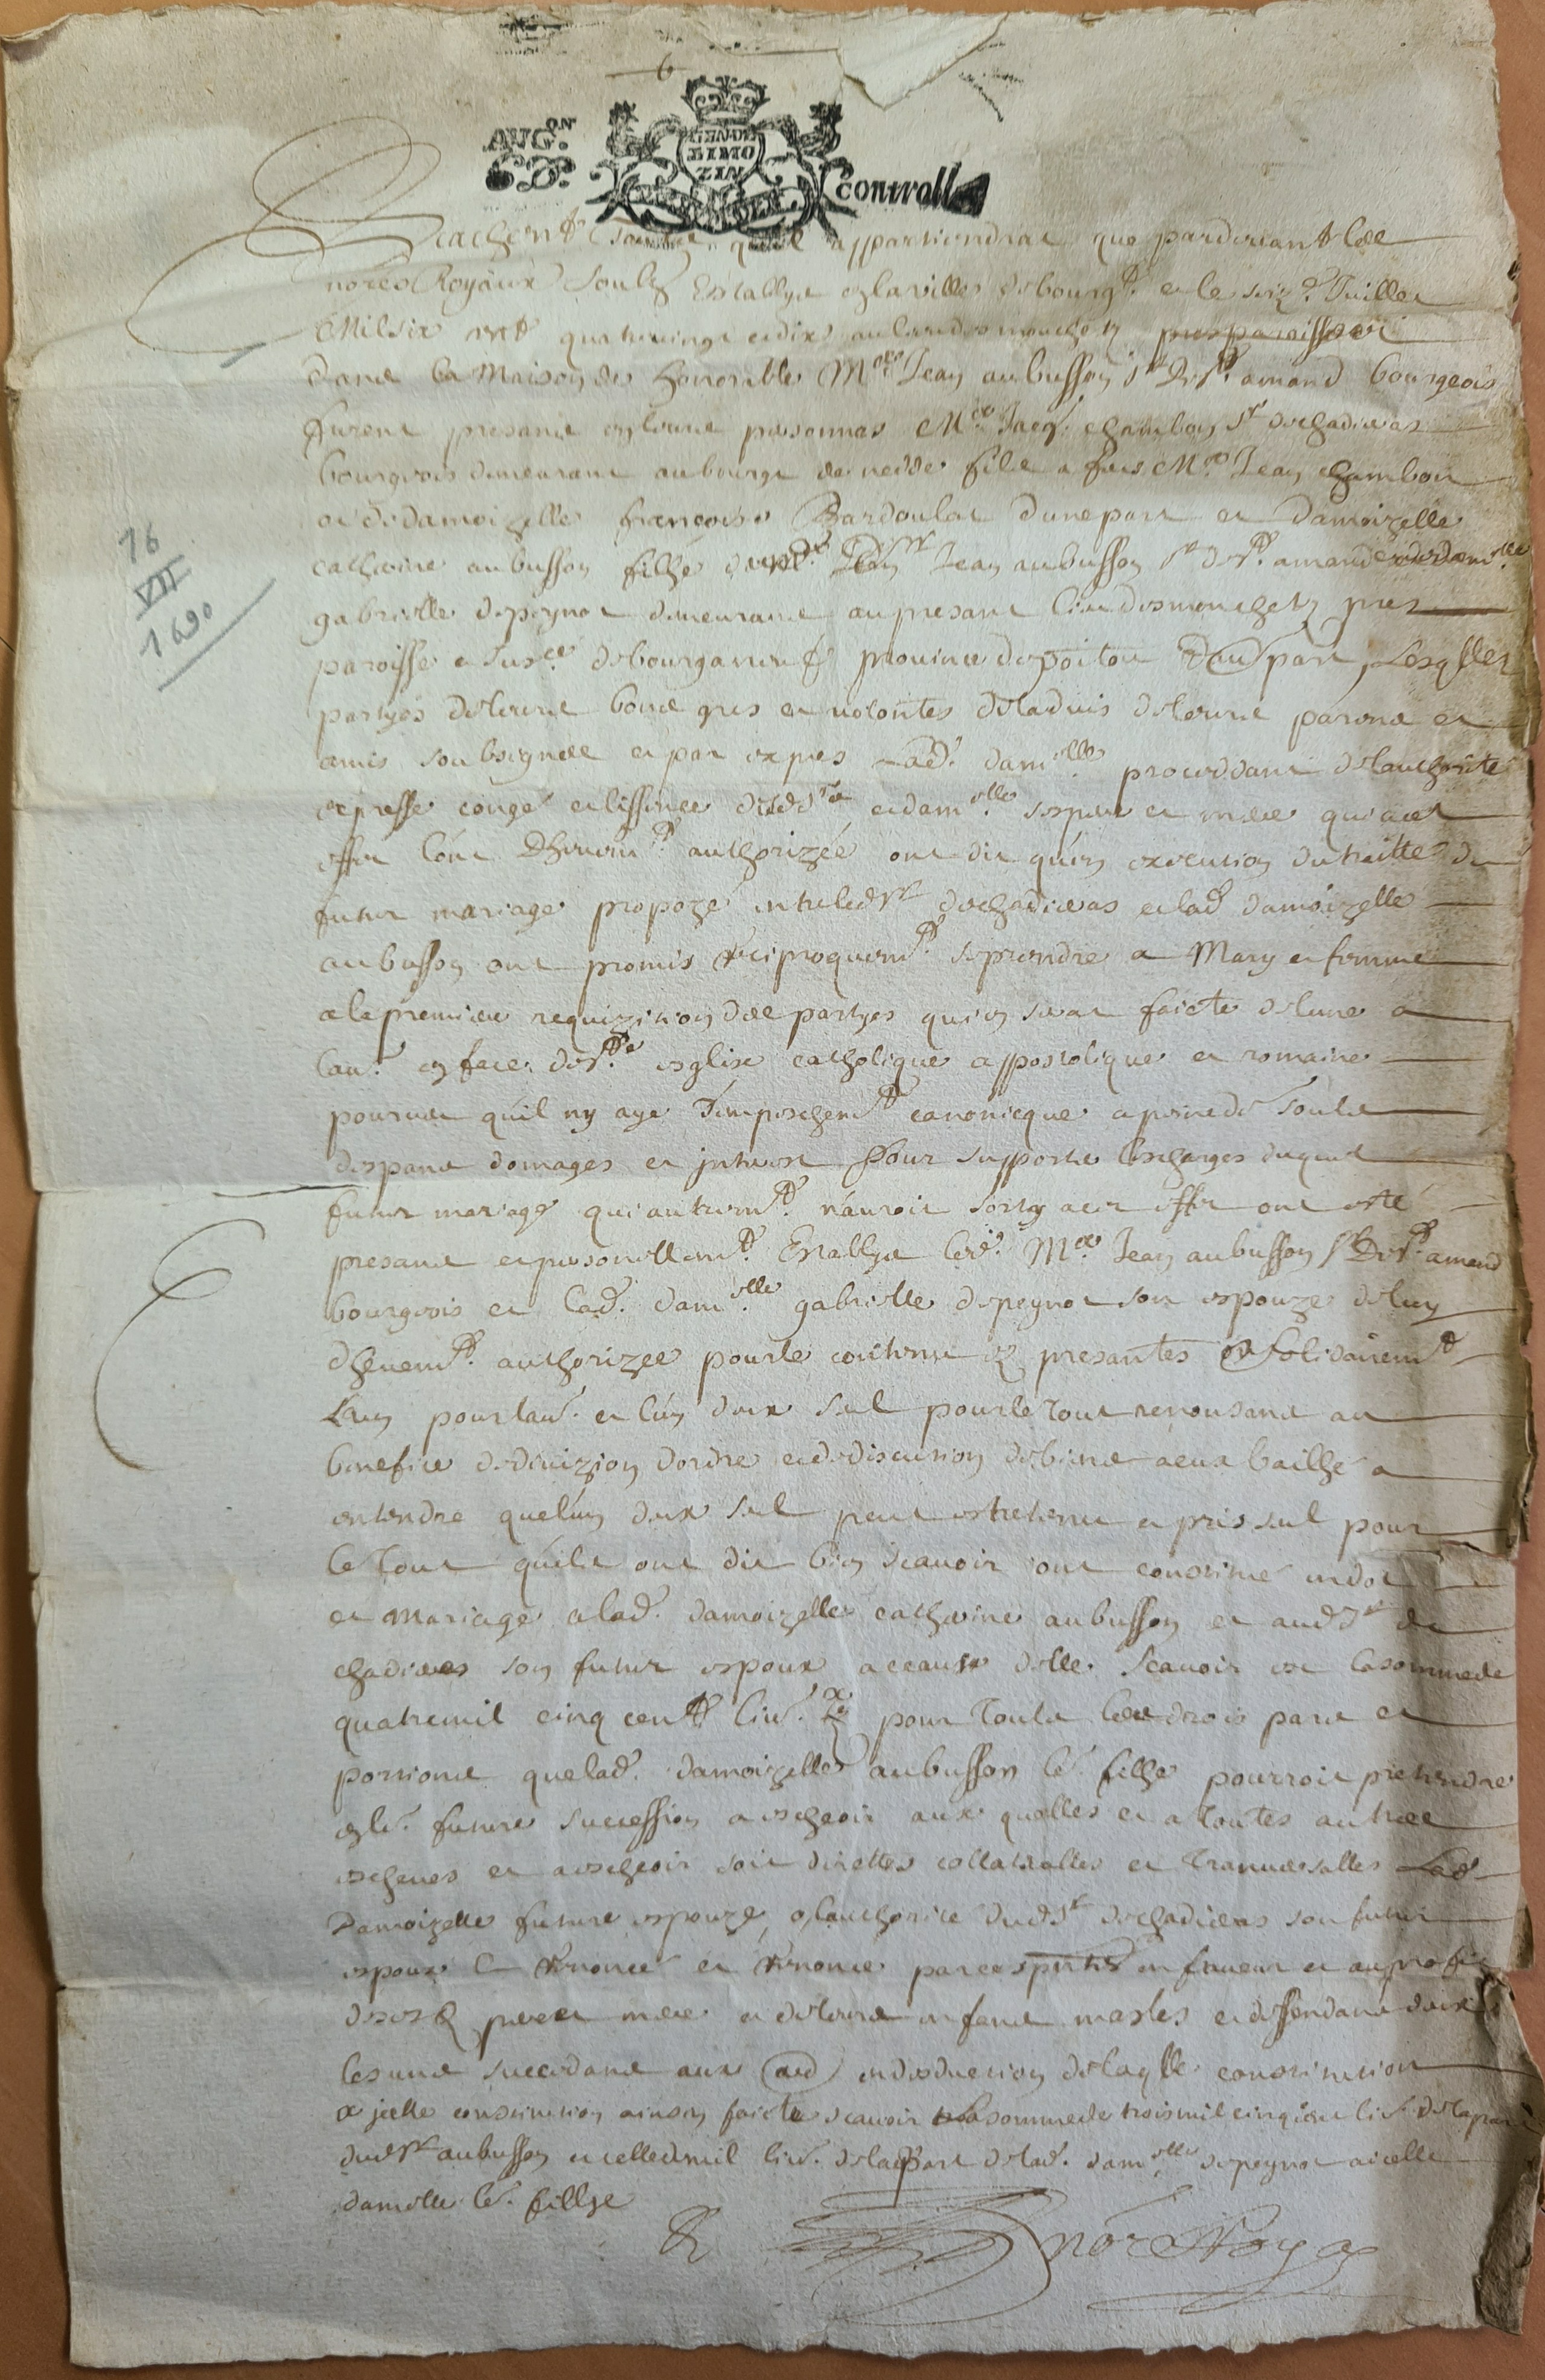 6
AUG.ON
6 D.
GEN.DE
LIMO
ZIN
controlle
Scachent tous qu'il appartiendrat que pardevant les
nores Royaux soubz establye en la ville de bourgt. et le seize. Juillet
Mil six cent quatre vingt et dix au lieu des mouchetz
dans la Maison de honorable Mre Jean aubusson sr de st. amand bourgeois
furent presans en leurs personnes Mre Jacq. chambon sr de chadieras
bourgeois demeurant au bourg de nedde fils a feus Mre Jean chambon
et de damoizelle francoise Bardoulat dune part et damoizelle
catherine aubusson fillhe Jean aubusson sr de st. amand et de damlle
gabrielle depeynot demeurant au presant lieu des mouchetz
paroisse e susce. de bourganeuf province de poitou dau. part, Lesqlles
partyes de leurs bons gres et volontes de ladvis de leurs parans et
amis soubsignes et par expres lad. damlle. proceddant de lauthorite
expresse conge et lissance desd. sr et damlle. ses pere et mere qui a cet
effet lont dheuemt. authorizée ont dit qu'en execution du traitte du
futur mariage propozé entre led sr de chadieras et lad damoizelle
aubusson ont promis reciproquemt. se prendre a Mary et femme
a la premiere requizition des partyes qui en serat faicte de lune a
lau. en face de ste. esglise catholique appostolique et romaine
pourveu qu'il ny aye d'empeschemt. canonicque a peine de touts
despans domages et jnterest Pour supporter les charges duquel
futur mariage qui autremt. n'auroit sorty a cet effet ont esté
presans et personellemt. Establys led. Mre Jean aubusson sr de st. amand
bourgeois et lad. damlle. gabrielle depeynot son espouze de luy
dheuemt. authorizee pour le contenu es presantes et solidairemt
Lun pour lau. et lun deux seul pour le tout renonsans au
benefice de divizion dordre et de discution de biens a eux bailhe a
entendre que lun deux seul peut estre tenu et pris seul pour
le tout qu'ils ont dit bien scavoir ont constitue en dot
et Mariage a lad. damoizelle catherine aubusson et aud sr de
chadieras son futur espoux a cause delle. Scavoir est la somme de
quatre mil cinq cent liv. tz pour touts les drois pars et
portions que lad. damoizelle aubusson le. fillhe pourroit pretendre
en le. future succession a escheoir aux quelles et a toutes autres
escheues et a escheoir soit dirette collateralles et Transversalles Lad
Damoizelle future espouze o lauthorite dud sr de chadieras son futur
espoux a renonce et renonce par ces pntes en faveur et au profit
de sesd. pere et mere et de leurs enfans masles et dessendans deux
les uns succedans aux au. en deduction de laqlle constitution
jcelle constitution ainsin faicte scavoir la somme de trois mil cinq cens liv. de la part
dud sr aubusson et celle de mil liv. de la part de lad. damlle. depeynot a icelle
damlle le. fillhe
R nore Royal
16
VII
1690